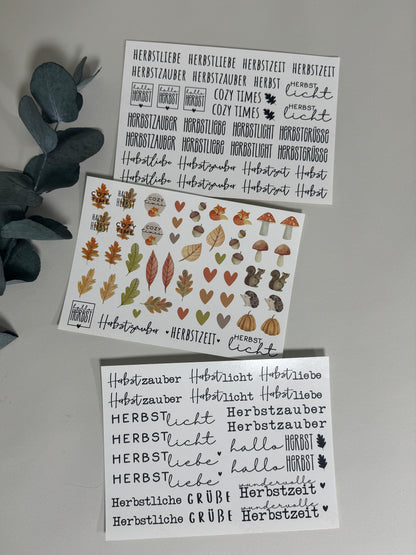 HERBSTLIEBE HERBSTLIEBE HERBSTZEIT HERBSTZEIT
HERBSTZAUBER HERBSTZAUBER HERBST HERBST licht
hallo HERBST hallo HERBST hallo HERBST COZY TIMES
COZY TIMES HERBST licht
HERBSTZAUBER HERBSTLIEBE HERBSTLICHT HERBSTGRÜSSE
HERBSTZAUBER HERBSTLIEBE HERBSTLICHT HERBSTGRÜSSE
Herbstliebe Herbstzauber Herbstzeit Herbst
Herbstliebe Herbstzauber Herbstzeit Herbst
COZY TIME HALLO HERBST COZY
HALLO HERBST COZY TIME COZY
hallo HERBST Herbstzauber HERBSTZEIT HERBST licht
Herbstzauber Herbstlicht Herbstliebe
Herbstzauber Herbstlicht Herbstliebe
HERBST licht Herbstzauber
HERBST licht Herbstzauber
HERBST liebe hallo HERBST
HERBST liebe hallo HERBST
Herbstliche GRÜßE wundervolle Herbstzeit
Herbstliche GRÜßE wundervolle Herbstzeit